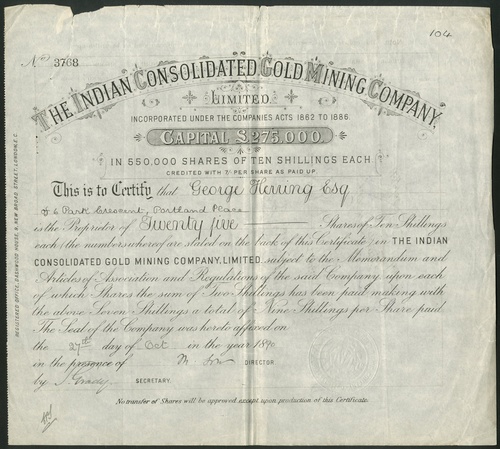 104
No. 3768
THE INDIAN CONSOLIDATED GOLD MINING COMPANY,
LIMITED.
INCORPORATED UNDER THE COMPANIES ACTS 1862 TO 1886.
CAPITAL £275,000.
IN 550,000 SHARES OF TEN SHILLINGS EACH
CREDITED WITH 7/- PER SHARE AS PAID UP.
This is to Certify that George Herring Esq
Park Crescent, Portland Place
is the Proprietor of Twenty five Shares of Ten Shillings
each (the numbers whereof are stated on the back of this Certificate) in THE INDIAN
CONSOLIDATED GOLD MINING COMPANY, LIMITED, subject to the Memorandum and
Articles of Association and Regulations of the said Company upon each
of which Shares the sum of Two Shillings has been paid making with
the above Seven Shillings a total of Nine Shillings per Share paid.
The Seal of the Company was hereto affixed on
the 27th day of Oct in the year 1890
in the presence of DIRECTOR
by J. Grady, SECRETARY.
No transfer of Shares will be approved except upon production of this Certificate.
REGISTERED OFFICE, DASHWOOD HOUSE, 9, NEW BROAD STREET, LONDON, E.C.